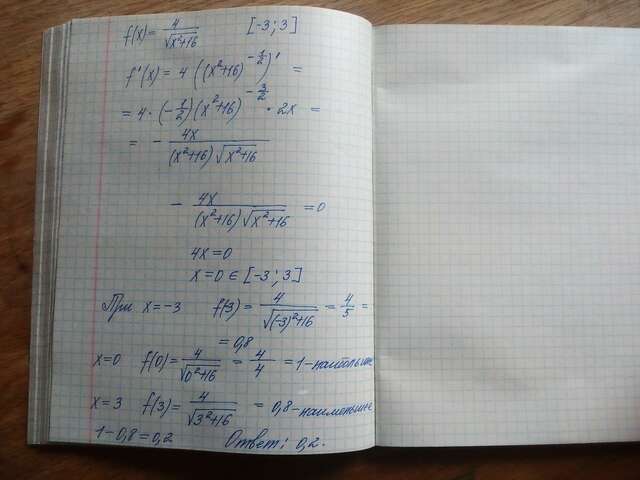 f(x) = 4/√(x²+16) [-3; 3]
f'(x) = 4((x²+16)^(-1/2))' =
= 4·(-1/2)(x²+16)^(-3/2) · 2x =
= - 4x/((x²+16)√(x²+16))
- 4x/((x²+16)√(x²+16)) = 0
4x = 0
x = 0 ∈ [-3; 3]
При x = -3 f(3) = 4/√((-3)²+16) = 4/5 =
= 0,8
x = 0 f(0) = 4/√(0²+16) = 4/4 = 1 -
x = 3 f(3) = 4/√(3²+16) = 0,8 -
1 - 0,8 = 0,2 Ответ: 0,2.